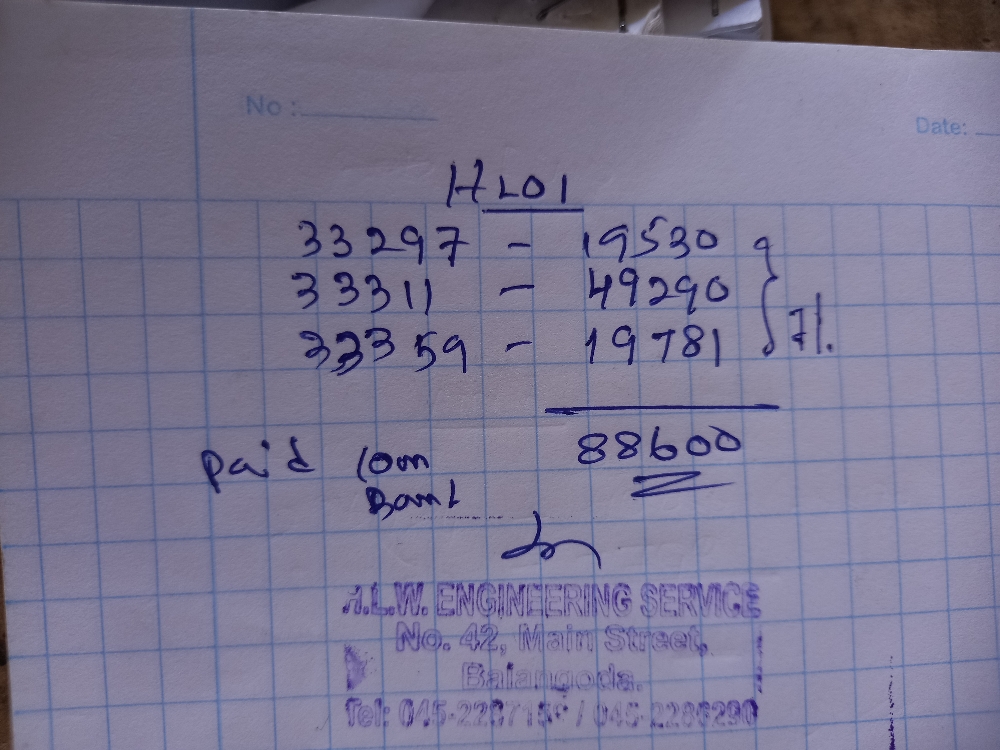 No :
Date:
HL01
33297 - 19530
33311 - 49290
33359 - 19781
7%.
88600
Paid Com
Bank
H.L.W. ENGINEERING SERVICE
No. 42, Main Street,
Balangoda.
Tel: 045-2287155 / 045-2286290